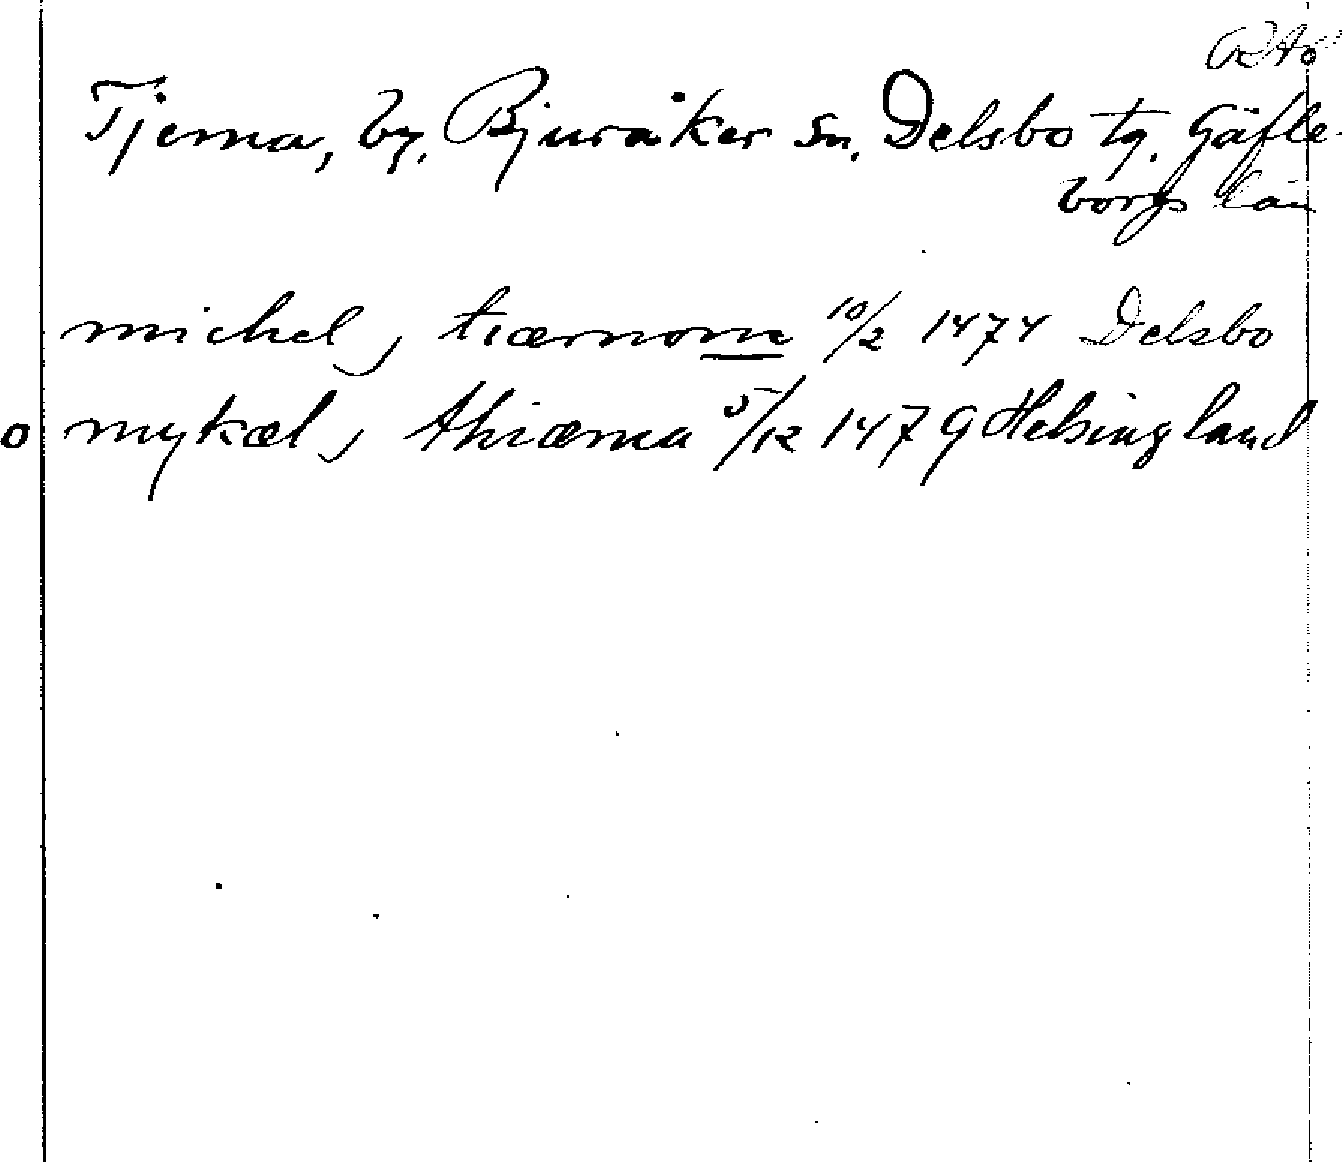 Tjerna, by, Bjuråker sn, Delsbo tg. Gäfle-
borgs län
michel j tiærnom 10/2 1474 Delsbo
o mykæl j thiærna 5/12 1479 Helsingland